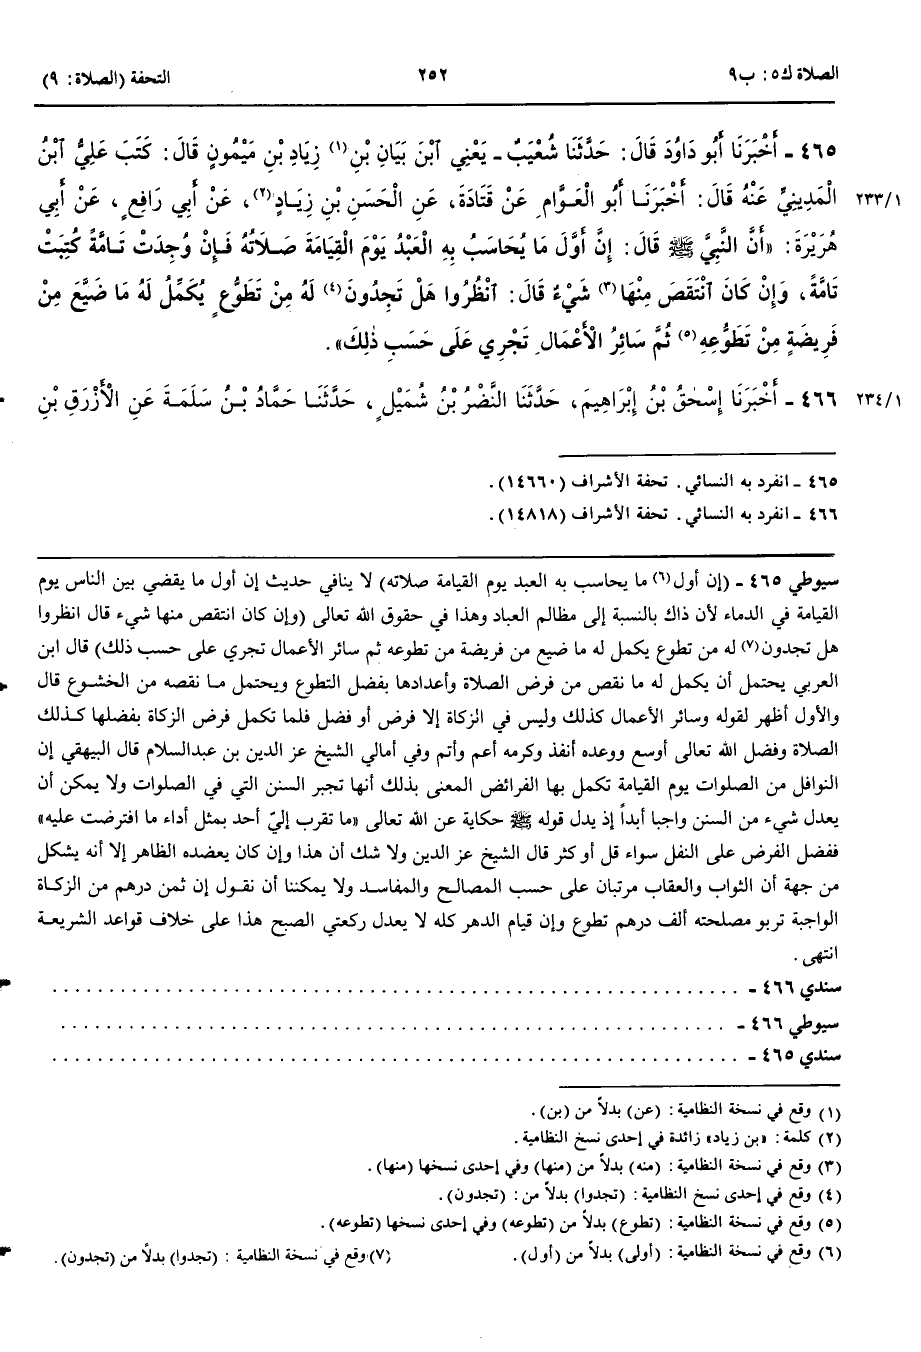 الصلاة ك٥: ب٩ ٢٥٢ التحفة (الصلاة: ٩)
٤٦٥ - أَخْبَرَنَا أَبُو دَاوُدَ قَالَ: حَدَّثَنَا شُعَيْبٌ - يَعْنِي ٱبْنَ بَيَانِ بْنِ(١) زِيَادِ بْنِ مَيْمُونٍ قَالَ: كَتَبَ عَلِيُّ ٱبْنُ
٢٣٣/١ الْمَدِينِيِّ عَنْهُ قَالَ: أَخْبَرَنَا أَبُو الْعَوَّامِ عَنْ قَتَادَةَ، عَنِ الْحَسَنِ بْنِ زِيَادٍ(٢)، عَنْ أَبِي رَافِعٍ، عَنْ أَبِي
هُرَيْرَةَ: «أَنَّ النَّبِيَّ ﷺ قَالَ: إِنَّ أَوَّلَ مَا يُحَاسَبُ بِهِ الْعَبْدُ يَوْمَ الْقِيَامَةِ صَلَاتُهُ فَإِنْ وُجِدَتْ تَامَّةً كُتِبَتْ
تَامَّةً، وَإِنْ كَانَ ٱنْتَقَصَ مِنْهَا(٣) شَيْءٌ قَالَ: ٱنْظُرُوا هَلْ تَجِدُونَ(٤) لَهُ مِنْ تَطَوُّعٍ يُكَمِّلُ لَهُ مَا ضَيَّعَ مِنْ
فَرِيضَةٍ مِنْ تَطَوُّعِهِ(٥) ثُمَّ سَائِرُ الْأَعْمَالِ تَجْرِي عَلَى حَسَبِ ذٰلِكَ».
٢٣٤/١ ٤٦٦ - أَخْبَرَنَا إِسْحٰقُ بْنُ إِبْرَاهِيمَ، حَدَّثَنَا النَّضْرُ بْنُ شُمَيْلٍ، حَدَّثَنَا حَمَّادُ بْنُ سَلَمَةَ عَنِ الْأَزْرَقِ بْنِ
٤٦٥ - انفرد به النسائي. تحفة الأشراف (١٤٦٦٠).
٤٦٦ - انفرد به النسائي. تحفة الأشراف (١٤٨١٨).
سيوطي ٤٦٥ - (إن أول(٦) ما يحاسب به العبد يوم القيامة صلاته) لا ينافي حديث إن أول ما يقضي بين الناس يوم
القيامة في الدماء لأن ذاك بالنسبة إلى مظالم العباد وهذا في حقوق الله تعالى (وإن كان انتقص منها شيء قال انظروا
هل تجدون(٧) له من تطوع يكمل له ما ضيع من فريضة من تطوعه ثم سائر الأعمال تجري على حسب ذلك) قال ابن
العربي يحتمل أن يكمل له ما نقص من فرض الصلاة وأعدادها بفضل التطوع ويحتمل ما نقصه من الخشوع قال
والأول أظهر لقوله وسائر الأعمال كذلك وليس في الزكاة إلا فرض أو فضل فلما تكمل فرض الزكاة بفضلها كذلك
الصلاة وفضل الله تعالى أوسع ووعده أنفذ وكرمه أعم وأتم وفي أمالي الشيخ عز الدين بن عبدالسلام قال البيهقي إن
النوافل من الصلوات يوم القيامة تكمل بها الفرائض المعنى بذلك أنها تجبر السنن التي في الصلوات ولا يمكن أن
يعدل شيء من السنن واجبا أبداً إذ يدل قوله ﷺ حكاية عن الله تعالى «ما تقرب إليّ أحد بمثل أداء ما افترضت عليه»
ففضل الفرض على النفل سواء قل أو كثر قال الشيخ عز الدين ولا شك أن هذا وإن كان يعضده الظاهر إلا أنه يشكل
من جهة أن الثواب والعقاب مرتبان على حسب المصالح والمفاسد ولا يمكننا أن نقول إن ثمن درهم من الزكاة
الواجبة تربو مصلحته ألف درهم تطوع وإن قيام الدهر كله لا يعدل ركعتي الصبح هذا على خلاف قواعد الشريعة
انتهى.
سندي ٤٦٦ - ..........................................................
سيوطي ٤٦٦ - ..........................................................
سندي ٤٦٥ - ..........................................................
(١) وقع في نسخة النظامية: (عن) بدلاً من (بن).
(٢) كلمة: «بن زياد» زائدة في إحدى نسخ النظامية.
(٣) وقع في نسخة النظامية: (منه) بدلاً من (منها) وفي إحدى نسخها (منها).
(٤) وقع في إحدى نسخ النظامية: (تجدوا) بدلاً من: (تجدون).
(٥) وقع في نسخة النظامية: (تطوع) بدلاً من (تطوعه) وفي إحدى نسخها (تطوعه).
(٦) وقع في نسخة النظامية: (أولى) بدلاً من (أول). (٧) وقع في نسخة النظامية: (تجدوا) بدلاً من (تجدون).